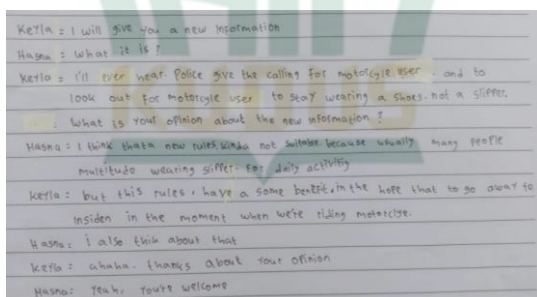 Keyla = I will give you a new information
Hasna = what it is ?
Keyla = I'll ever hear. Police give the calling for motorcyle user. and to
look out for motorcyle user to stay wearing a shoes. not a slipper.
: what is your opinion about the new information ?
Hasna = I think thata new rules, kinda not suitable. because usually many people
multitude wearing slipper. For daily activitiy
Keyla = but this rules, have a some benefit, in the hope that to go away to
insiden in the moment when we're riding motorclye.
Hasna = i also think about that
Keyla = ahaha. thanks about your opinion
Hasna = Yeah, you're welcome